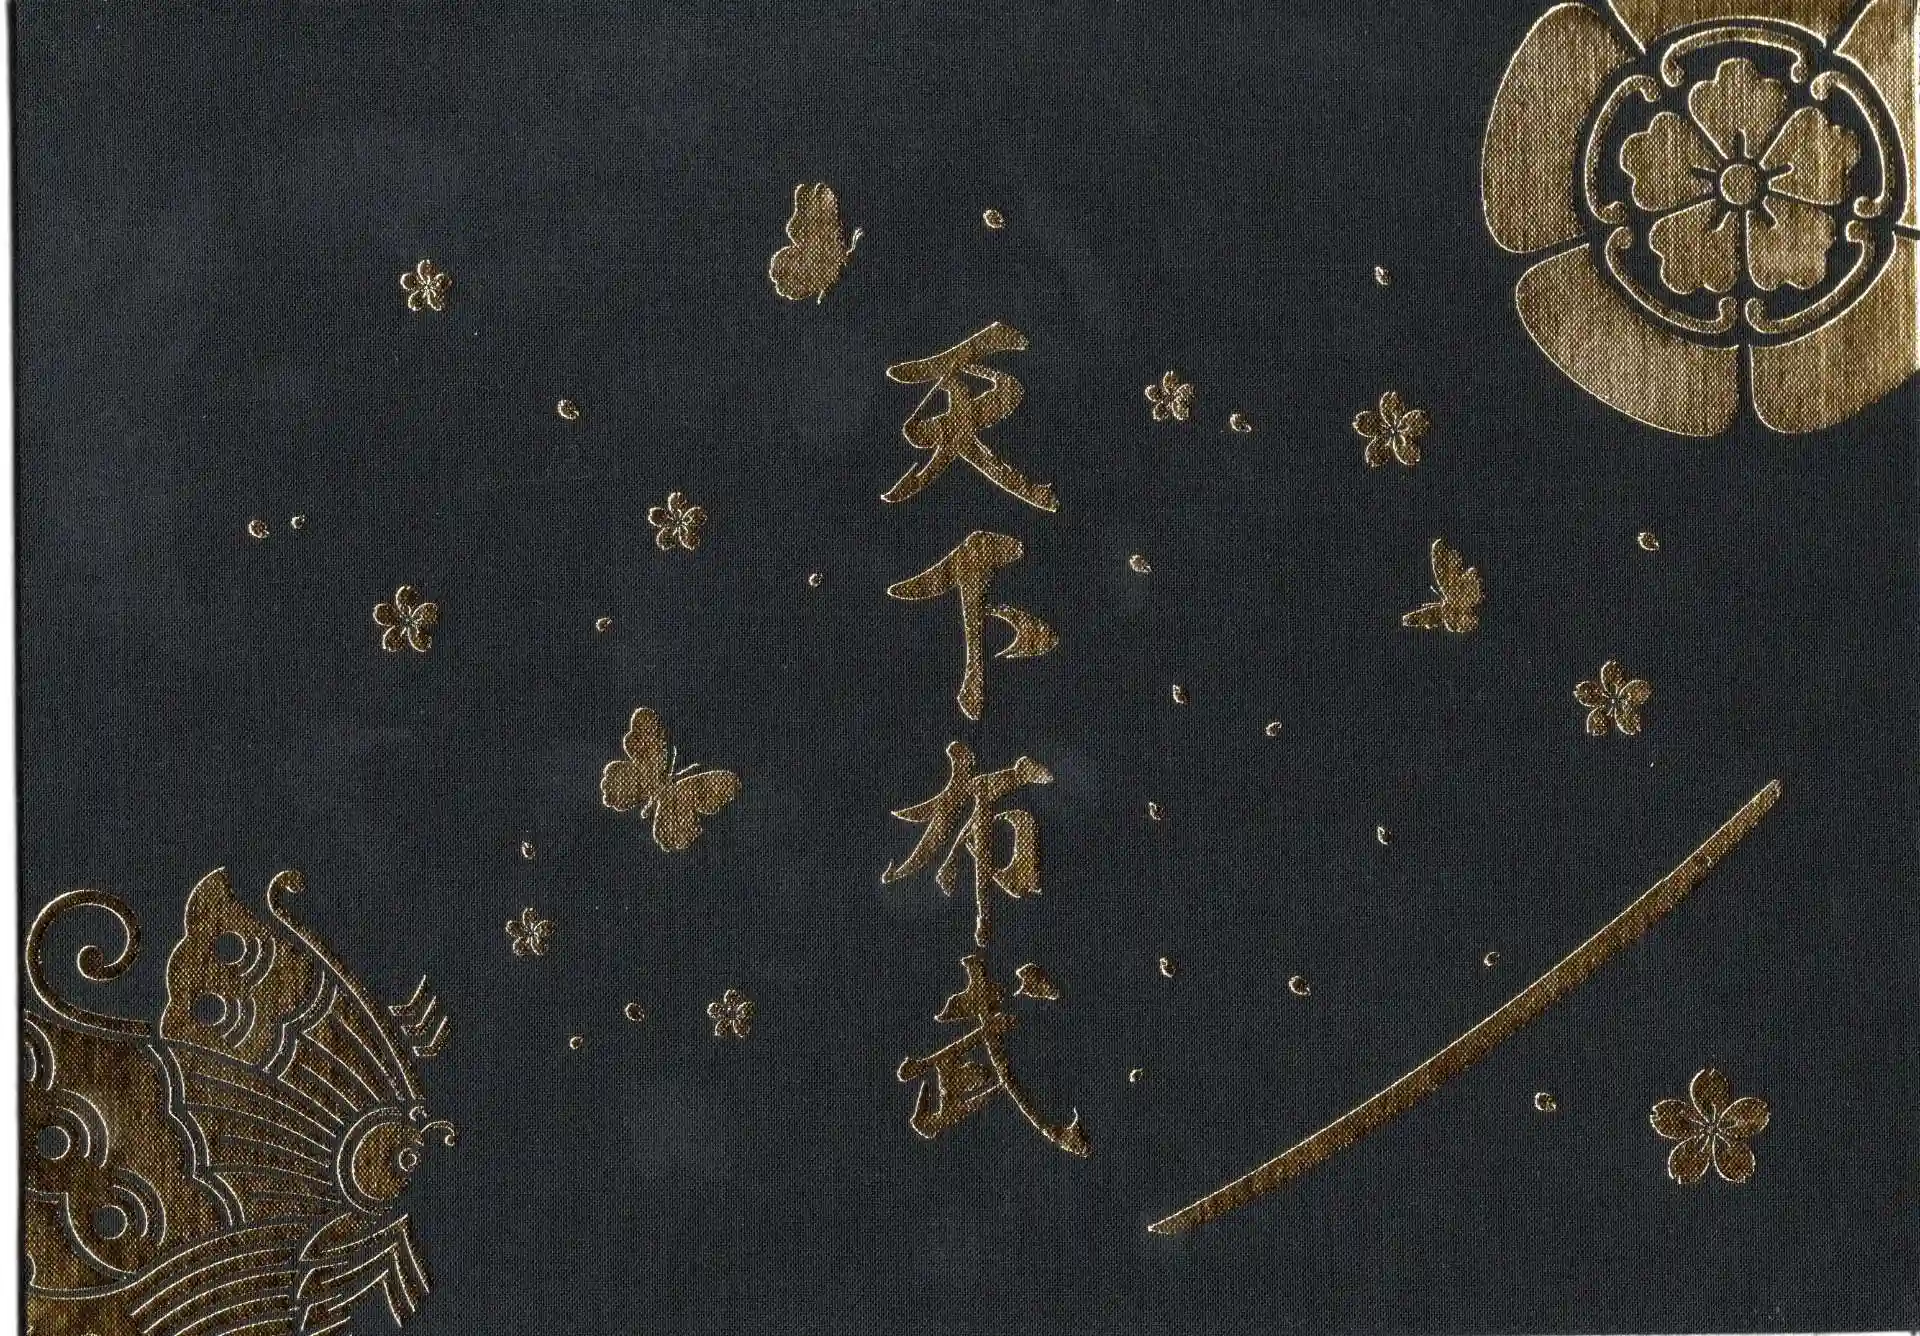 天下布武